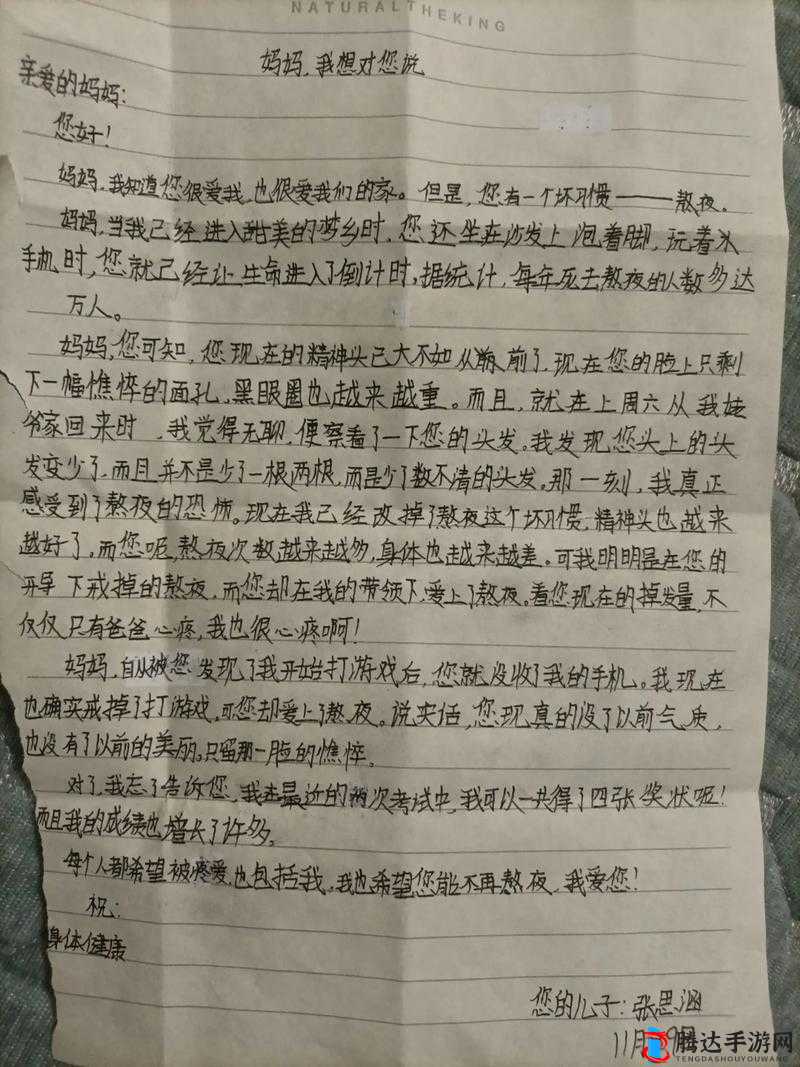 NATURALTHEKING
妈妈，我想对您说
亲爱的妈妈：
您好！
妈妈，我知道您很爱我，也很爱我们的家。但是，您有一个坏习惯——熬夜。
妈妈，当我已经进入甜美的梦乡时，您还坐在沙发上泡着脚，玩着
手机时，您就已经让生命进入了倒计时，据统计，每年死去熬夜的人数多达
万人。
妈妈，您可知，您现在的精神头已大不如从前了，现在您的脸上只剩
下一幅憔悴的面孔，黑眼圈也越来越重。而且，就在上周六从我姥
爷家回来时，我觉得无聊，便察看了一下您的头发。我发现您头上的头
发变少了，而且并不是少了一根两根，而是少了数不清的头发。那一刻，我真正
感受到了熬夜的恐怖。现在我已经改掉了熬夜这个坏习惯，精神头也越来
越好了，而您呢，熬夜次数越来越多，身体也越来越差。可我明明是在您的
导下戒掉的熬夜，而您却在我的带领下，爱上了熬夜。看您现在的掉发量，不
仅仅只有爸爸心疼，我也很心疼啊！
妈妈，自从被您发现了我开始打游戏后，您就没收了我的手机。我现在
也确实戒掉了打游戏，可您却爱上了熬夜。说实话，您现真的没了以前气质，
也没有了以前的美丽。只留那一脸的憔悴。
对了，我忘了告诉您，我在最近的两次考试中，我可以一共得了四张奖状呢！
而且我的成绩也增长了许多。
每个人都希望被疼爱，也包括我，我也希望您能不再熬夜，我爱您！
祝：
身体健康
您的儿子：张思涵
11月9日
腾达手游网
TENGDASHOUYOUWANG